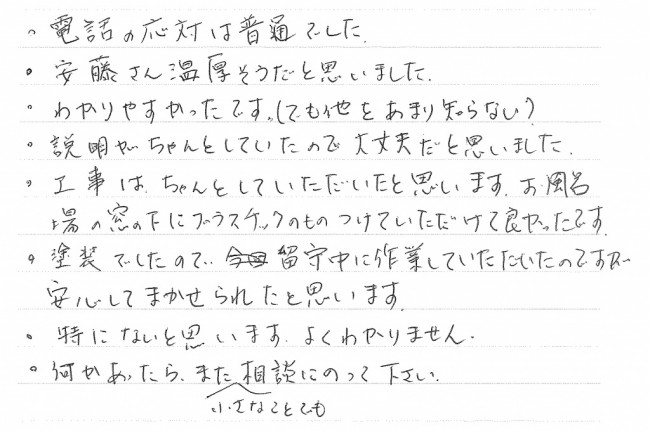 ・電話の応対は普通でした。
・安藤さん温厚そうだと思いました。
・わかりやすかったです。(でも他をあまり知らない?)
・説明がちゃんとしていたので大丈夫だと思いました。
・工事は、ちゃんとしていただいたと思います。お風呂
場の窓の下にプラスチックのものつけていただけて良かったです。
・塗装でしたので、今回留守中に作業していただいたのですが
安心してまかせられたと思います。
・特にないと思います。よくわかりません。
・何かあったら、また相談にのって下さい。
小さなことでも